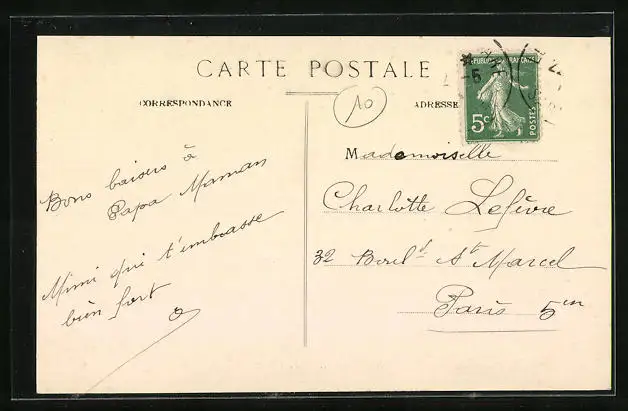 CARTE POSTALE
CORRESPONDANCE
ADRESSE
10
REPUBLIQUE FRANÇAISE
5c
POSTES
Bons baisers à
Papa Maman
Mimi qui t'embrasse
bien fort
Mademoiselle
Charlotte Lefèvre
32 Boul.d St Marcel
Paris 5em